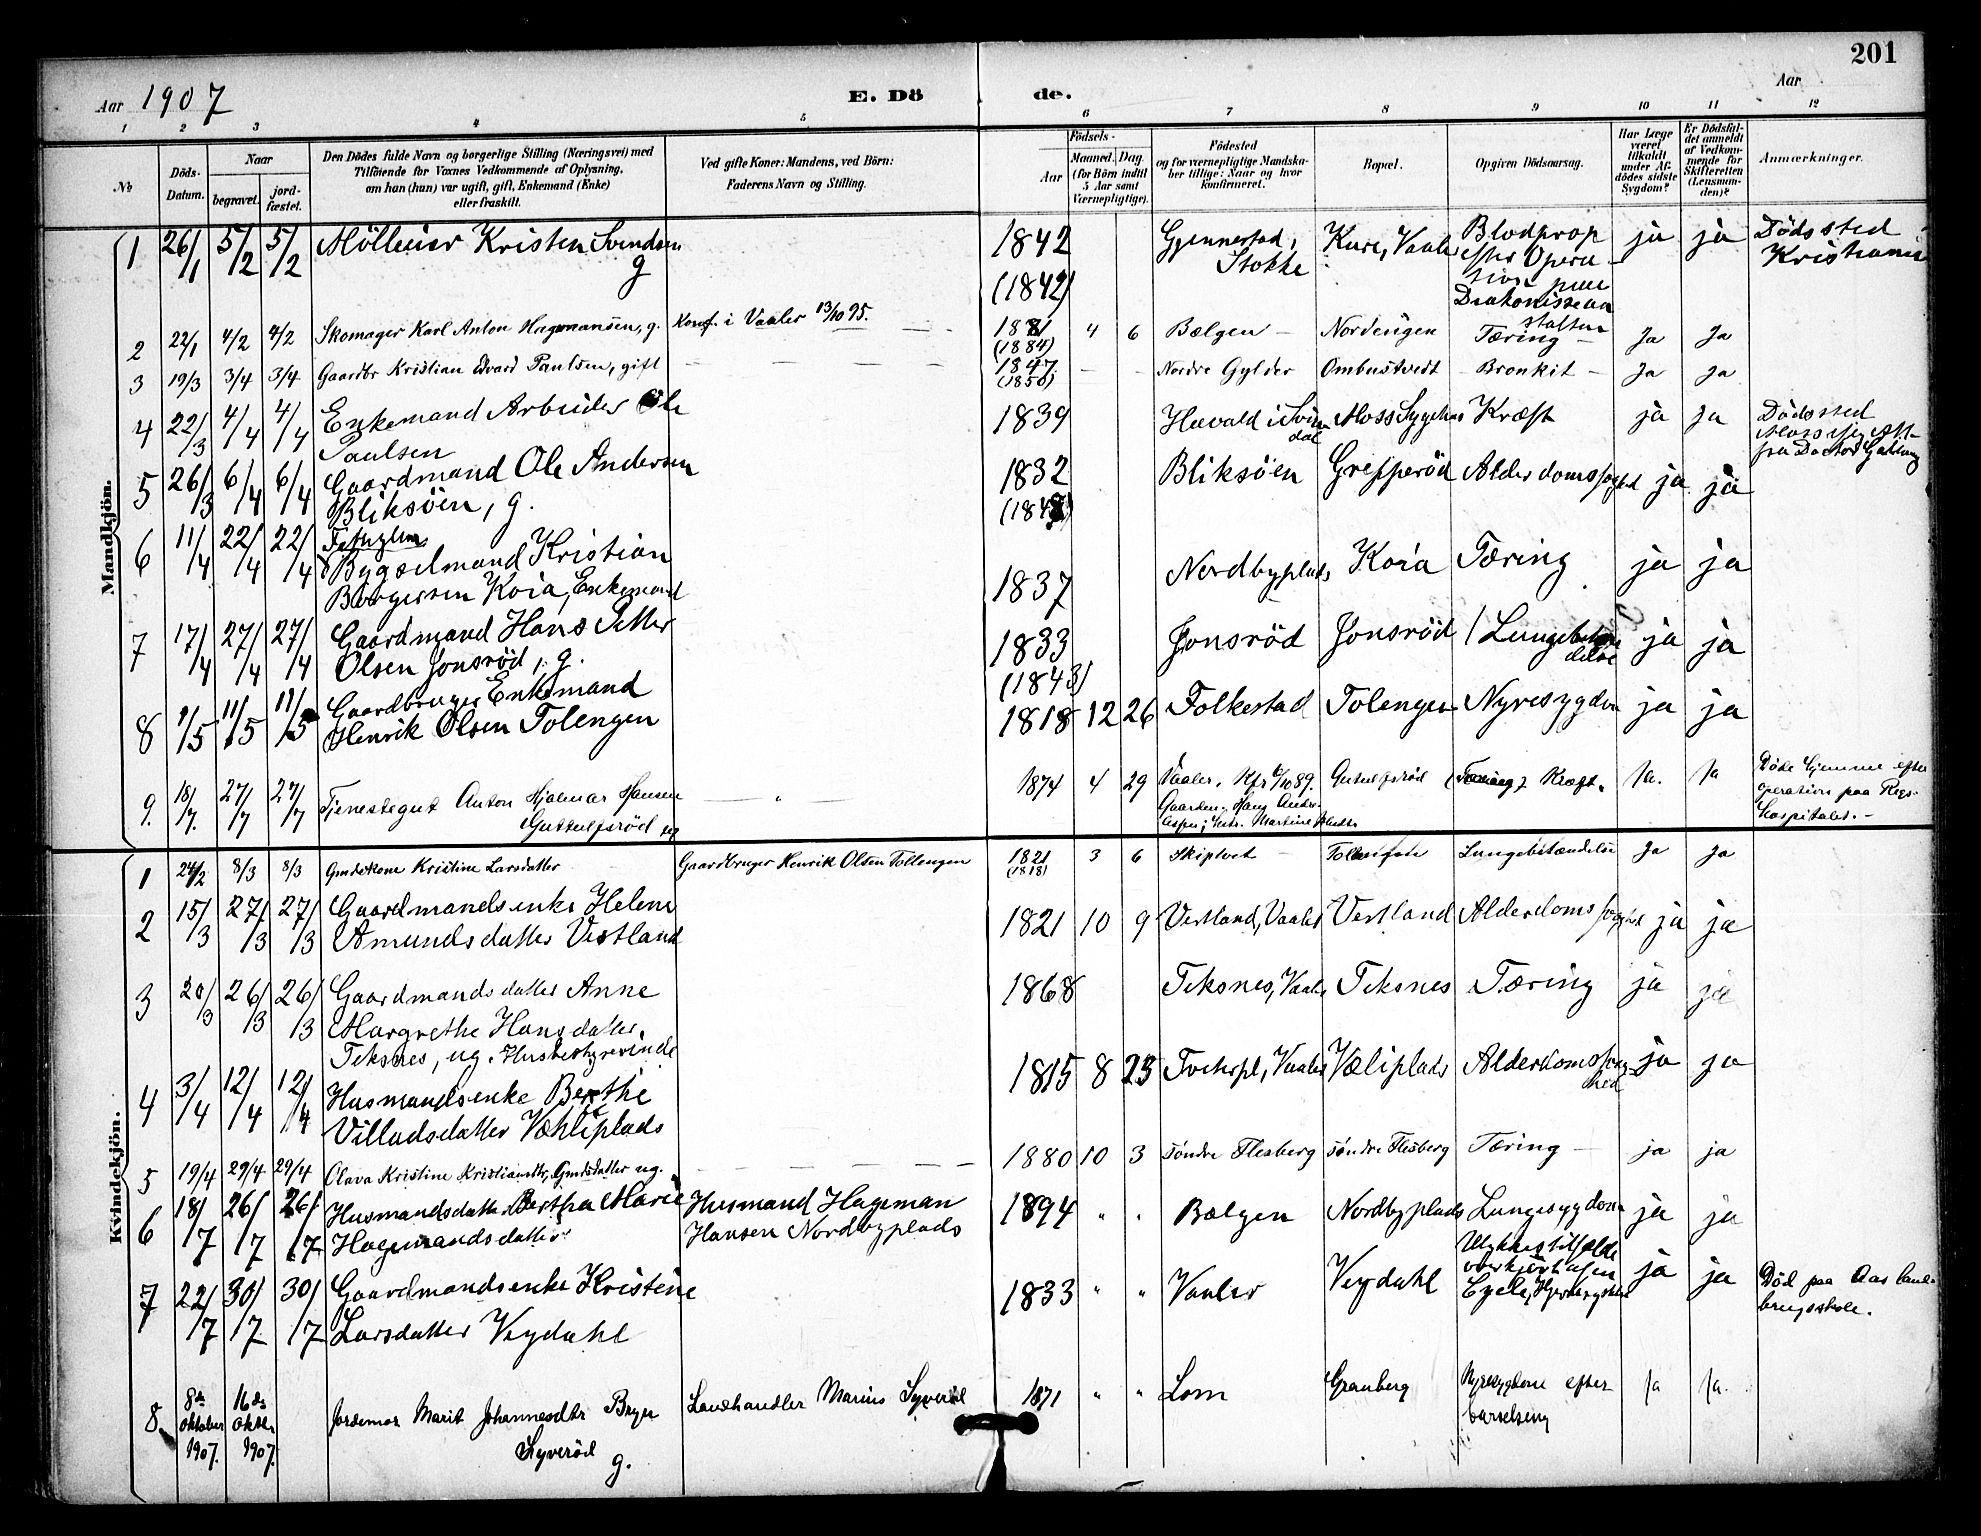 201
Aar 1907
E. Döde.
Aar
1 2 3 4 5 6 7 8 9 10 11 12
No
Döds-Datum.
Naar
begravet.
jord-fæstet.
Den Dödes fulde Navn og borgerlige Stilling (Næringsvei) med
Tilföiende for Voxnes Vedkommende af Oplysning,
om han (hun) var ugift, gift, Enkemand (Enke)
eller fraskilt.
Ved gifte Koner: Mandens, ved Börn:
Faderens Navn og Stilling.
Födsels-
Aar
Maaned. Dag.
(for Börn indtil
5 Aar samt
Værnepligtige).
Födested
og for værnepligtige Mandska-
ber tillige: Naar og hvor
konfirmeret.
Bopæl.
Opgiven Dödsaarsag.
Har Læge
været
tilkaldt
under Af-
dödes sidste
Sygdom?
Er Dödsfal-
det anmeldt
af Vedkom-
mende for
Skifteretten
(Lensman-
den)?
Anmærkninger.
Mandkjön.
1 26/1 5/2 5/2 Mölleier Kristen Svendsen g 1842 (1842) Gjennestad, Stokke Kure, Vaaler Blodprop efter Operation paa ja ja Dödssted Kristiania
2 22/1 4/2 4/2 Skomager Karl Anton Hagemansen, g. Konf. i Vaaler 13/10 95. 1881 (1884) 4 6 Bælgen Nordengen Tæring Ja Ja
3 19/3 3/4 3/4 Gaardbr Kristian Edvard Paulsen, gift 1847 (1850) Nordre Gylder Ombustvedt Bronkit Ja Ja
4 22/3 4/4 4/4 Enkemand Arbeider Ole Paulsen 1839 Moss Sygehus Kræft ja ja Dödssted
5 26/3 6/4 6/4 Gaardmand Ole Andersen Bliksöen, g. 1832 Bliksöen Grepperöd Alderdomssvaghed ja ja
6 11/4 22/4 22/4 Bygselmand Kristian Borgersen Koia, Enkemand 1837 Nordbyplads Koia Tæring ja ja
7 17/4 27/4 27/4 Gaardmand Hans Petter Olsen Jonsröd, g. 1833 (1843) Jonsröd Jonsröd Lungebetændelse ja ja
8 1/5 11/5 11/5 Gaardbruger Enkemand Henrik Olsen Tolengen 1818 12 26 Folkestad Tolengen Nyresygdom ja ja
9. 18/7. 27/7 27/7 Tjenestegut Anton Hjalmar Hansen Guttulfsröd ug 1874 4 29 Vaaler. Kfr 6/10 89. Guttulfsröd Kræft. Ja. Ja Döde hjemme efter operation paa Rigs-Hospitalet.
Kvindekjön.
1 24/2 8/3 8/3 Gmdskone Kristine Larsdatter Gaardbruger Henrik Olsen Tollengen 1821 (1818) 3 6 Skiptvet Tollengen Lungebetændelse Ja Ja
2 15/3 27/3 27/3 Gaardmandsenke Helene Amundsdatter Vestland 1821 10 9 Vestland, Vaaler Vestland Alderdomssvaghed ja ja
3 20/3 26/3 26/3 Gaardmandsdatter Anne Margrethe Hansdatter Teksnes, ug. Husbestyrerinde 1868 Teksnes, Vaaler Teksnes Tæring ja ja
4 3/4 12/4 12/4 Husmandsenke Berthe Villadsdatter Væhliplads 1815 8 23 Vaaler Væliplads Alderdomssvaghed ja ja
5 19/4 29/4 29/4 Olava Kristine Kristiansdtr, Gmdsdatter ug. 1880 10 3 Söndre Flesberg Söndre Flesberg Tæring ja ja
6 18/7 26/7 26/7 Husmandsdatter Bertha Marie Hagemandsdatter Husmand Hageman Hansen Nordbyplads 1894 " " Bælgen Nordbyplads Lungesygdom ja ja
7 22/7 30/7 30/7 Gaardmandsenke Kristine Larsdatter Veydahl 1833 " " Vaaler Veydahl Ulykkestilfælde overkjört af en Cycle, ja ja Död paa Aas landbrugsskole.
8 8de oktober 1907. 16de oktbr 1907. Jordemor Marit Johannesdtr Bryn Syveröd g. Landhandler Marius Syveröd 1871 " " Lom Granberg Nyresygdom efter barselseng Ja Ja.